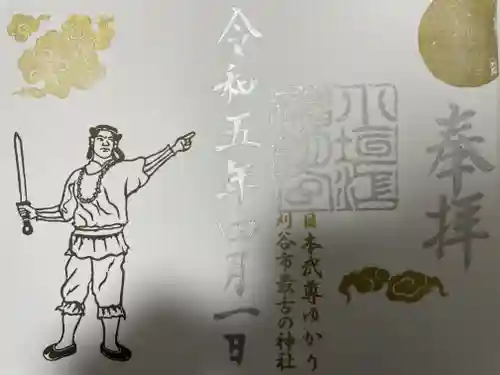 奉拝
小垣江
神明宮
日本武尊ゆかり
刈谷市最古の神社
令和五年四月一日